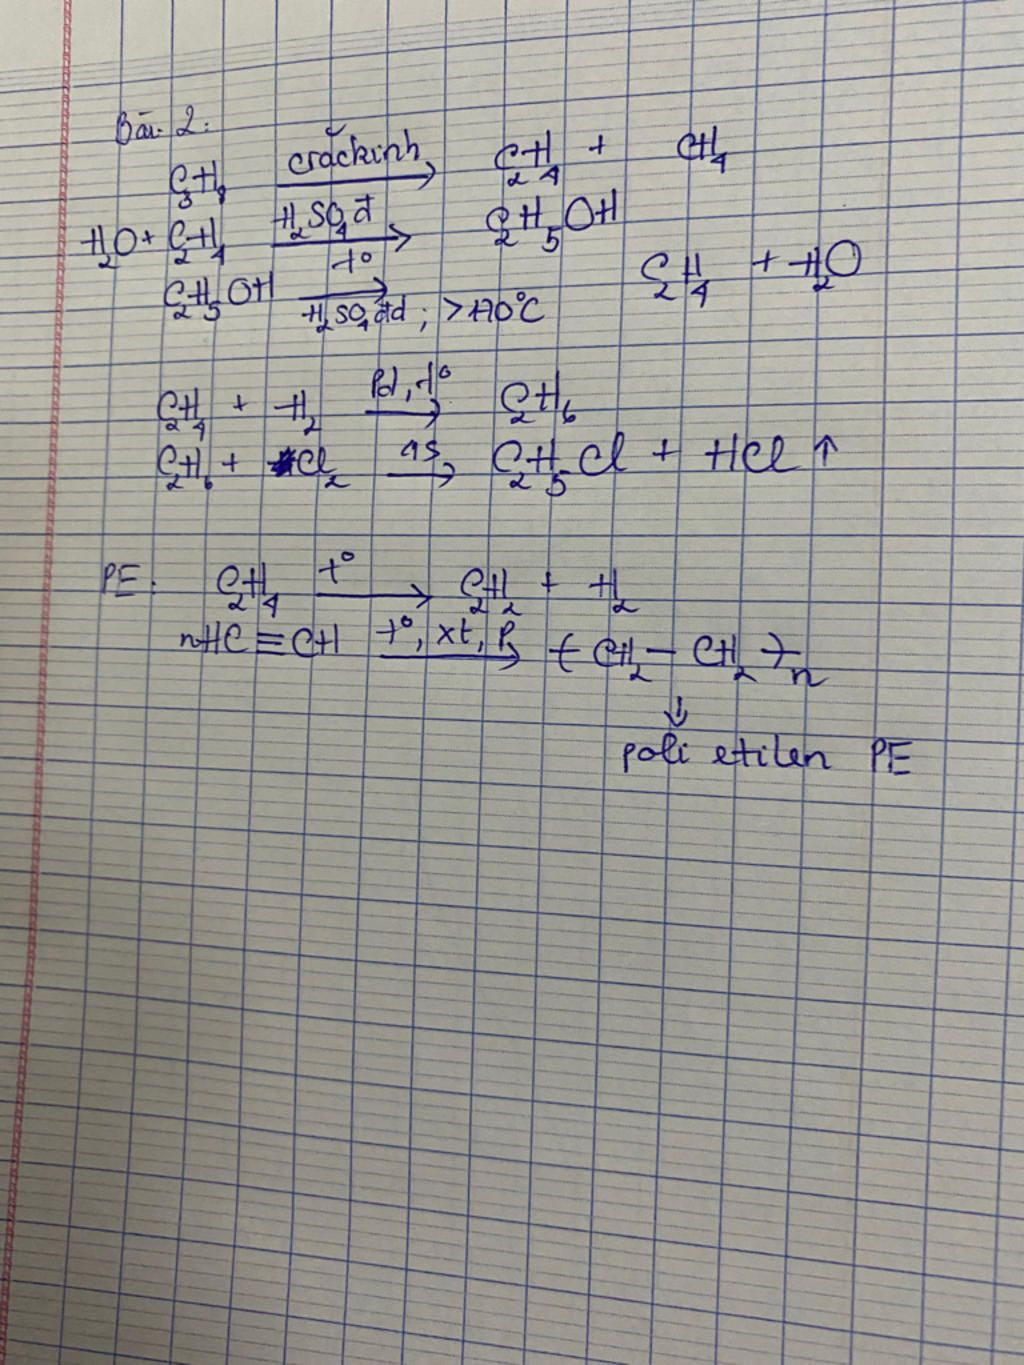 Bài 2:
C₃H₈ crăckinh → C₂H₄ + CH₄
H₂O + C₂H₄ H₂SO₄đ → C₂H₅OH
C₂H₅OH t° → H₂SO₄đd ; >170°C C₂H₄ + H₂O
C₂H₄ + H₂ Pd, t° → C₂H₆
C₂H₆ + Cl₂ as → C₂H₅Cl + HCl ↑
PE: C₂H₄ t° → C₂H₂ + H₂
nHC≡CH t°, xt, P → (CH₂ – CH₂)n
↓
poli etilen PE